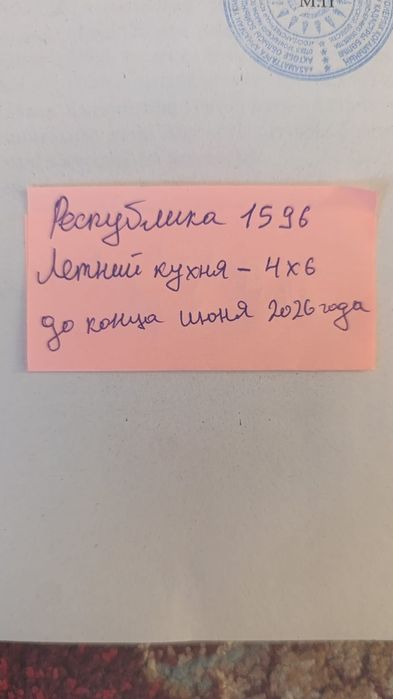 М.П
Республика 1596
Летний кухня – 4х6
до конца июня 2026 года